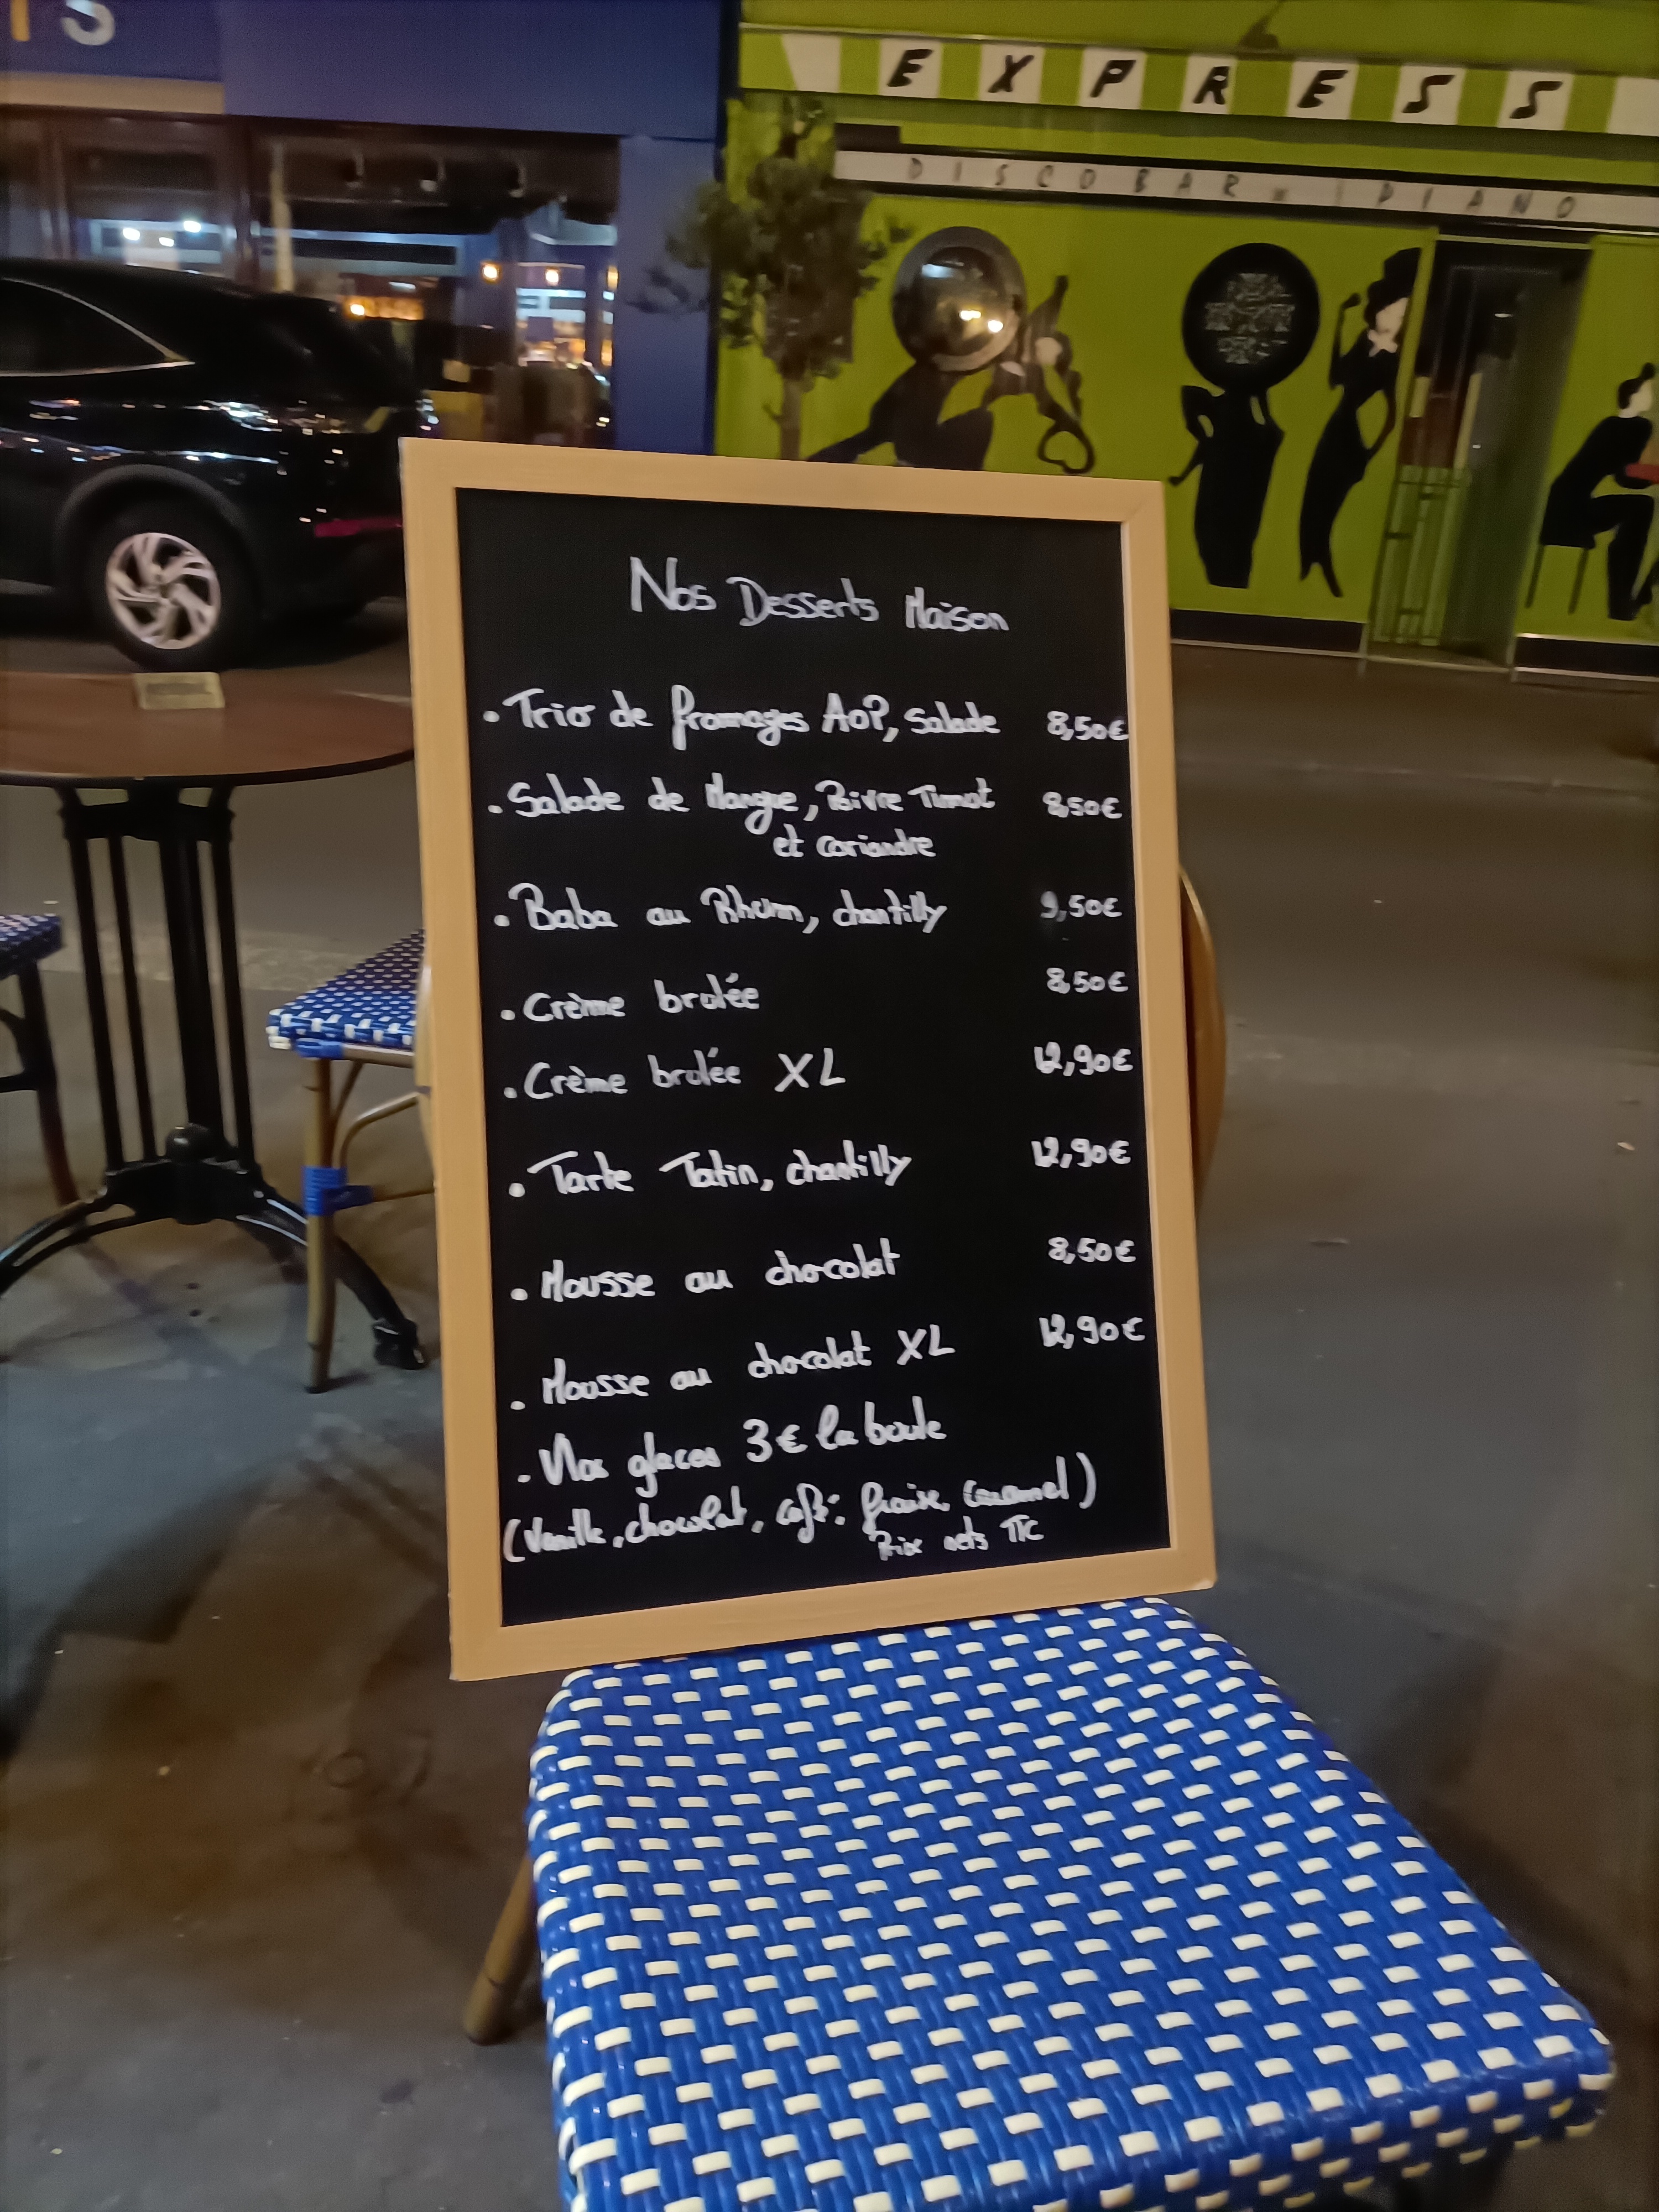 IS
EXPRESS
DISCOBAR
PIANO
Nos Desserts Maison
• Trio de fromages AOP, Salade 8,50€
• Salade de Mangue, Poivre Timot 8,50€
et coriandre
• Baba au Rhum, chantilly 9,50€
• Crème brulée 8,50€
• Crème brulée XL 12,90€
• Tarte Tatin, chantilly 12,90€
• Mousse au chocolat 8,50€
• Mousse au chocolat XL 12,90€
• Nos glaces 3€ la boule
(Vanille, chocolat, café, fraise, Caramel)
Prix nets TTC